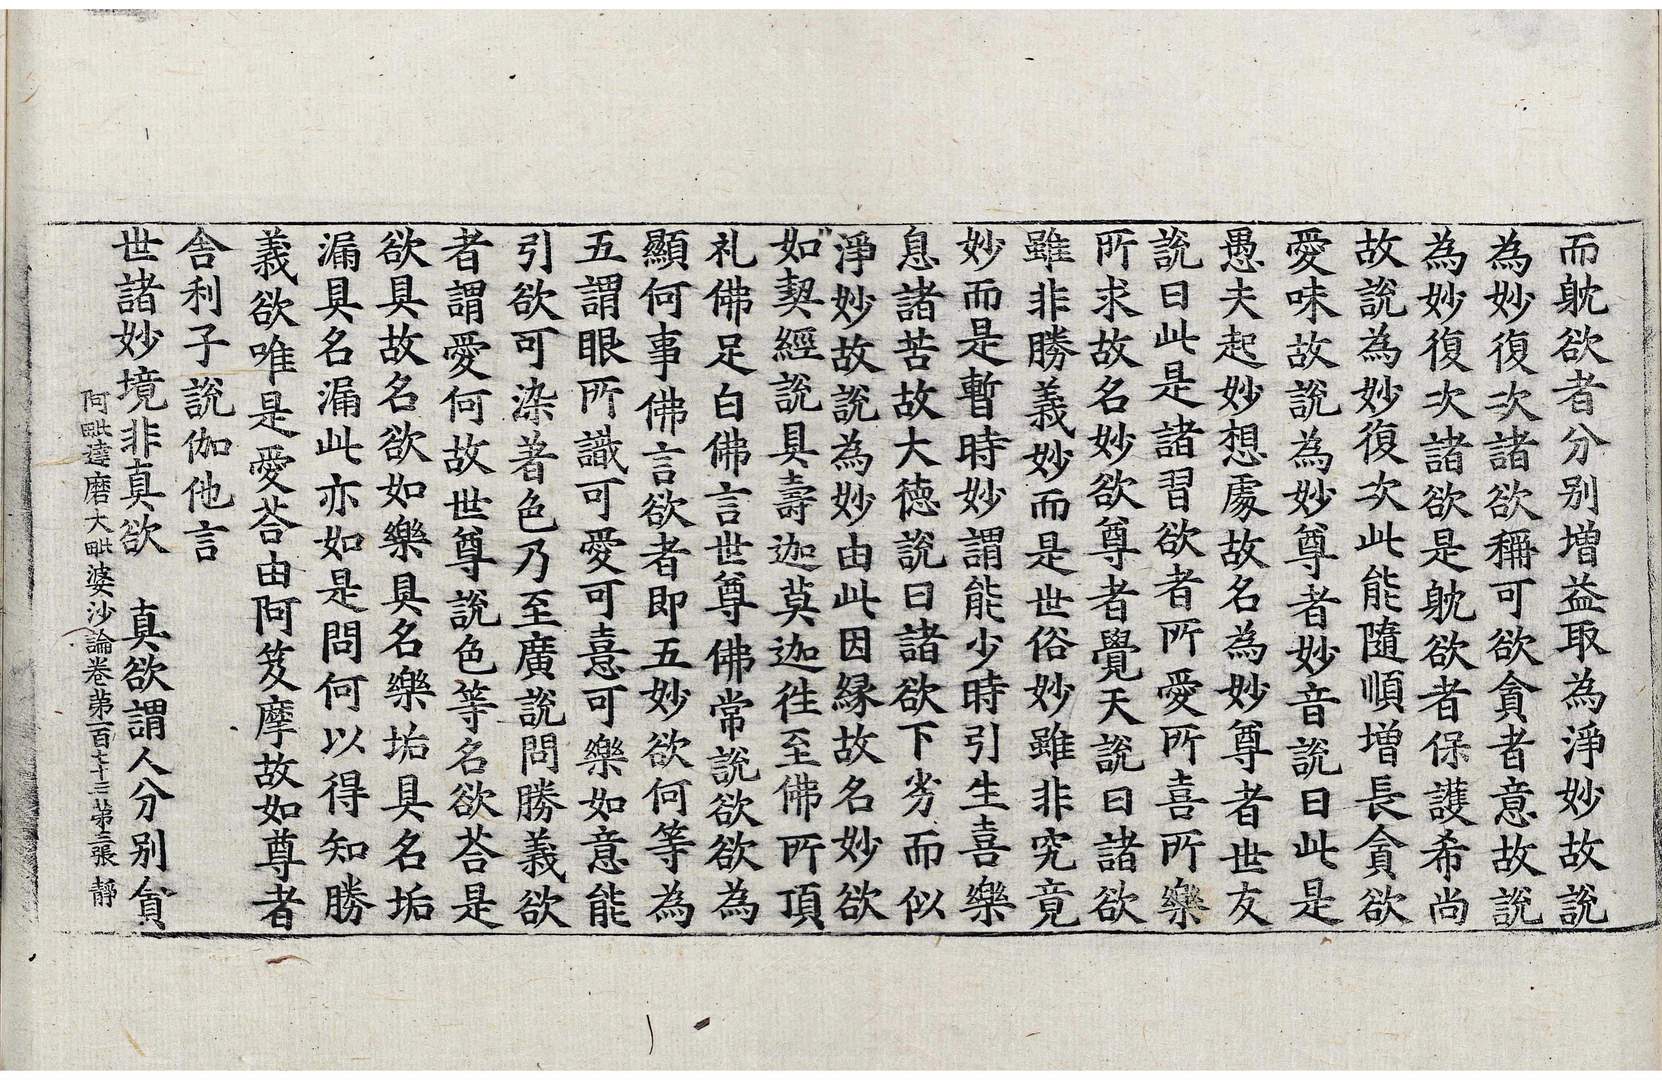 而躭欲者分別增益取為淨妙故說
為妙復次諸欲稱可欲貪者意故說
為妙復次諸欲是躭欲者保護希尚
故說為妙復次此能隨順增長貪欲
愛味故說為妙尊者妙音說曰此是
愚夫起妙想處故名為妙尊者世友
說曰此是諸習欲者所愛所喜所樂
所求故名妙欲尊者覺天說曰諸欲
雖非勝義妙而是世俗妙雖非究竟
妙而是暫時妙謂能少時引生喜樂
息諸苦故大德說曰諸欲下劣而似
淨妙故說為妙由此因縁故名妙欲
如契經說具壽迦莫迦徃至佛所頂
礼佛足白佛言世尊佛常說欲欲為
顯何事佛言欲者即五妙欲何等為
五謂眼所識可愛可憙可樂如意能
引欲可染著色乃至廣說問勝義欲
者謂愛何故世尊說色等名欲荅是
欲具故名欲如樂具名樂垢具名垢
漏具名漏此亦如是問何以得知勝
義欲唯是愛荅由阿笈摩故如尊者
舎利子說伽他言
世諸妙境非真欲　真欲謂人分別貪
阿毗達磨大毗婆沙論卷第一百七十三第三張　靜